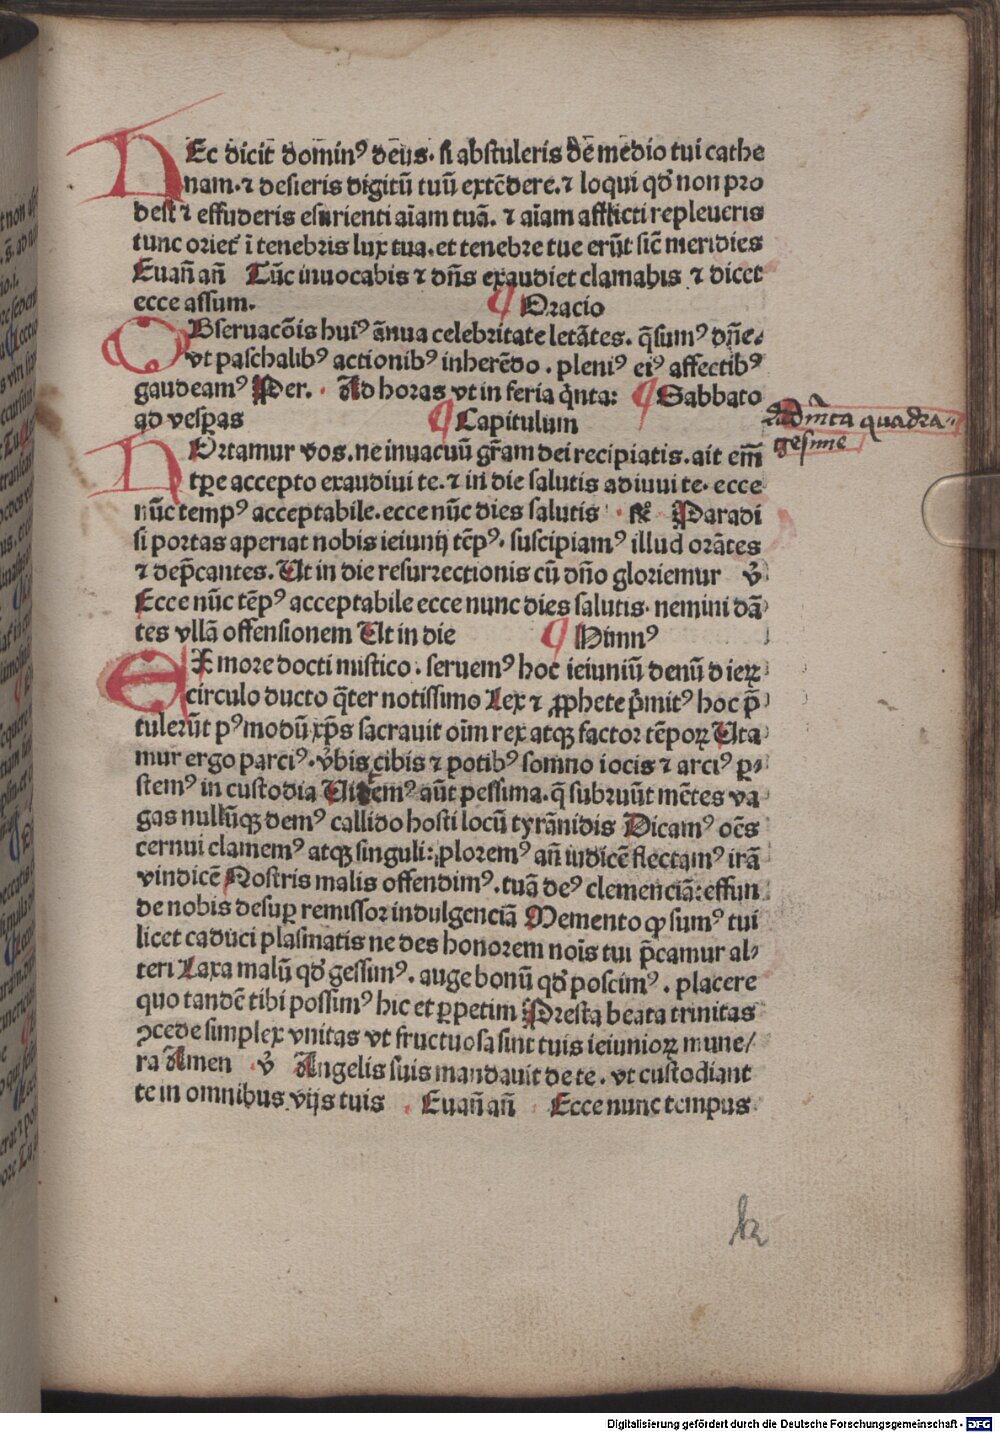 HEc dicit dominꝰ deus. si abstuleris de medio tui cathe
nam. ⁊ desieris digitū tuū extēdere. ⁊ loqui qđ non pro
dest ⁊ effuderis esurienti aīam tuā. ⁊ aīam afflicti repleueris
tunc oriet ī tenebris lux tua. et tenebre tue erūt sic̄ meridies
Euan̄ an̄ Tūc inuocabis ⁊ dn̄s exaudiet clamabis ⁊ dicet
ecce assum. ¶ Oracio
OBseruacōis huiꝰ ānua celebritate letātes. q̄sumꝰ dn̄e.
vt paschalibꝰ actionibꝰ inherēdo. pleniꝰ eiꝰ affectibꝰ
gaudeamꝰ Per. Ad horas vt in feria q̄nta: ¶ Sabbato
ad vesꝑas ¶ Capitulum
Ad īn̄ta quadra
gesime
HOrtamur vos. ne inuacuū gr̄am dei recipiatis. ait em̄
tꝑe accepto exaudiui te. ⁊ in die salutis adiuui te. ecce
nūc tempꝰ acceptabile. ecce nūc dies salutis ℟ Paradi
si portas aperiat nobis ieiunij tēpꝰ. suscipiamꝰ illud orātes
⁊ dep̄cantes. Ut in die resurrectionis cū dn̄o gloriemur ℣
Ecce nūc tēpꝰ acceptabile ecce nunc dies salutis. nemini dā
tes vllā offensionem Ut in die ¶ Himnꝰ
EX more docti mistico. seruemꝰ hoc ieiuniū denū dierꝝ
circulo ducto q̄ter notissimo Lex ⁊ ꝓphete p̄mitꝰ hoc p̄
tulerūt pꝰ modū xp̄s sacrauit oīm rex atqꝫ factor tēporꝝ Uta
mur ergo parciꝰ. v̄bis cibis ⁊ potibꝰ somno iocis ⁊ arciꝰ ꝑ
stemꝰ in custodia Uitemꝰ aūt pessima. q̄ subruūt mētes va
gas nullūqꝫ demꝰ callido hosti locū tyrānidis Dicamꝰ oēs
cernui clamemꝰ atqꝫ singuli: ploremꝰ an̄ iudicē flectamꝰ irā
vindicē Nostris malis offendimꝰ. tuā deꝰ clemenciā: effun
de nobis desuꝑ remissor indulgenciā Memento ꝙ sumꝰ tui
licet caduci plasmatis ne des honorem noīs tui p̄camur al
teri Laxa malū qđ gessimꝰ. auge bonū qđ poscimꝰ. placere
quo tandē tibi possimꝰ hic et ꝑpetim Presta beata trinitas
ꝯcede simplex vnitas vt fructuosa sint tuis ieiuniorꝝ mune/
ra Amen ℣ Angelis suis mandauit de te. vt custodiant
te in omnibus vijs tuis Euan̄ an̄ Ecce nunc tempus
k
Digitalisierung gefördert durch die Deutsche Forschungsgemeinschaft - DFG